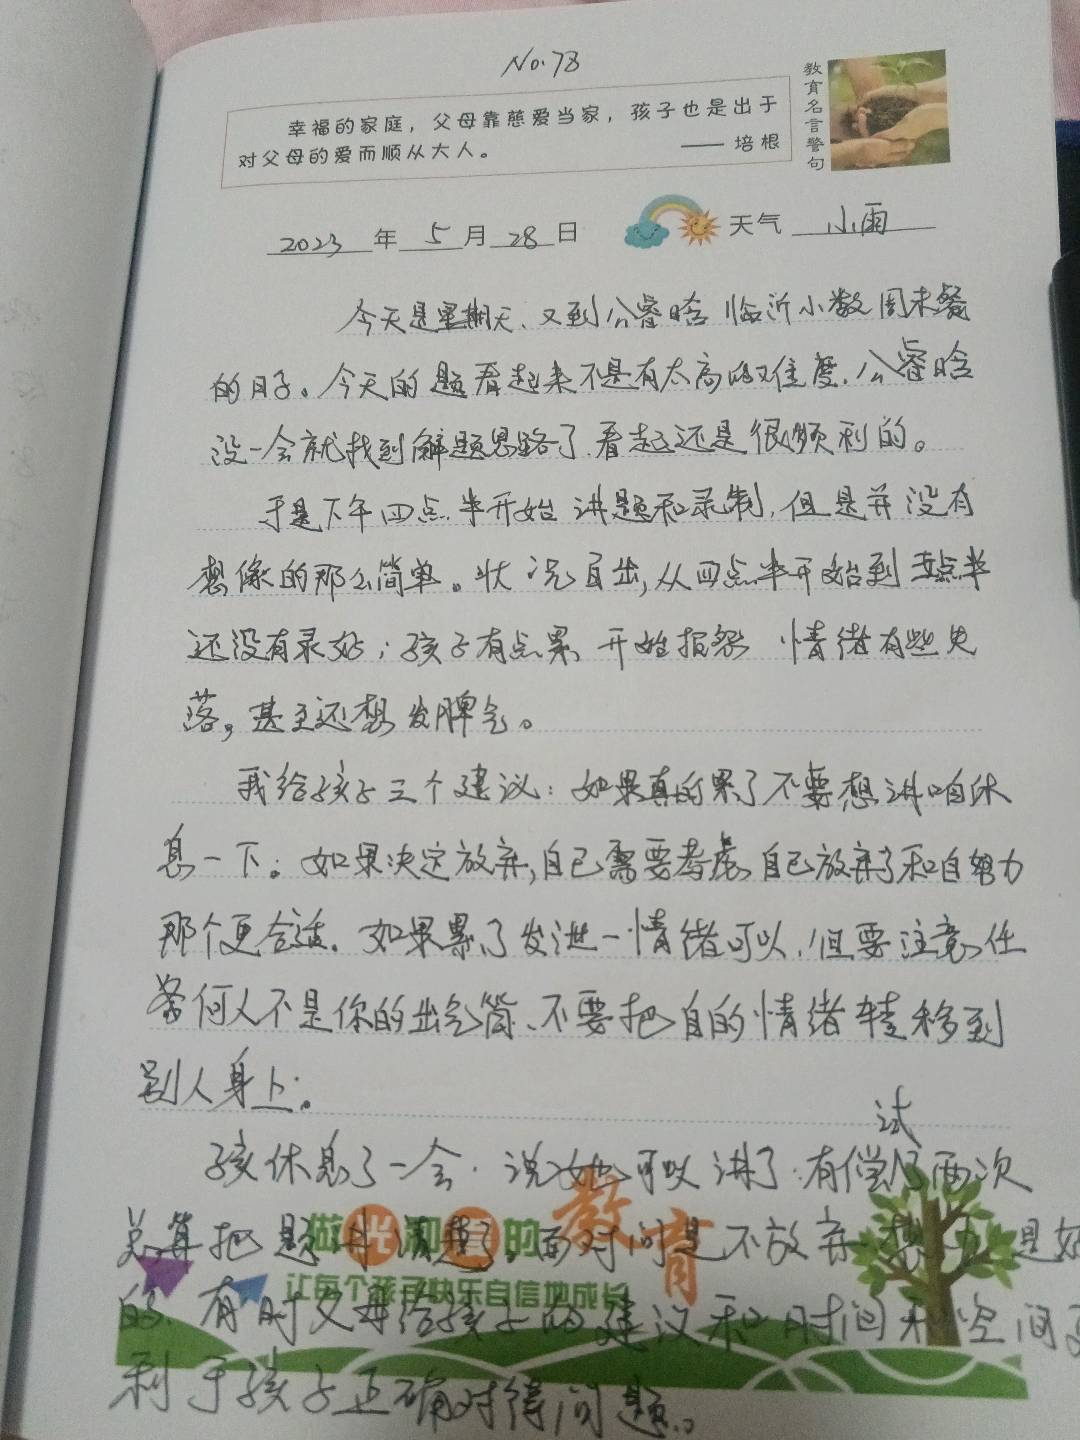 No.78
幸福的家庭，父母靠慈爱当家，孩子也是出于
对父母的爱而顺从大人。 —— 培根
教育名言警句
2023年5月28日 天气 小雨
今天是星期天、又到公睿晗 临沂小数周末餐
的日子。今天的题看起来不是有太高的难度.公睿晗
没一会就找到解题思路了.看起还是很顺利的。
于是下午四点.半开始 讲题和录制,但是并没有
想像的那么简单。状况百出,从四点半开始到 点半
还没有录好；孩子有点累 开始报怨 情绪有些失
落，甚至还想发脾气。
我给孩子三个建议：如果真的累了不要想讲咱休
息一下。如果决定放弃,自己需要考虑 自己放弃了和自努力
那个更合适. 如果累了发泄一情绪可以,但要注意任
何人不是你的出气筒、不要把自的情绪转移到
别人身上.
孩休息了一会.说她可以讲了.有尝试了两次
总算把题讲清楚了.面对问是不放弃 想办 是好
的.有时父母给孩子的建议和时间和空间更
利于孩子正确对待问题。
做 光 和 的 教育
让每个孩子快乐自信地成长